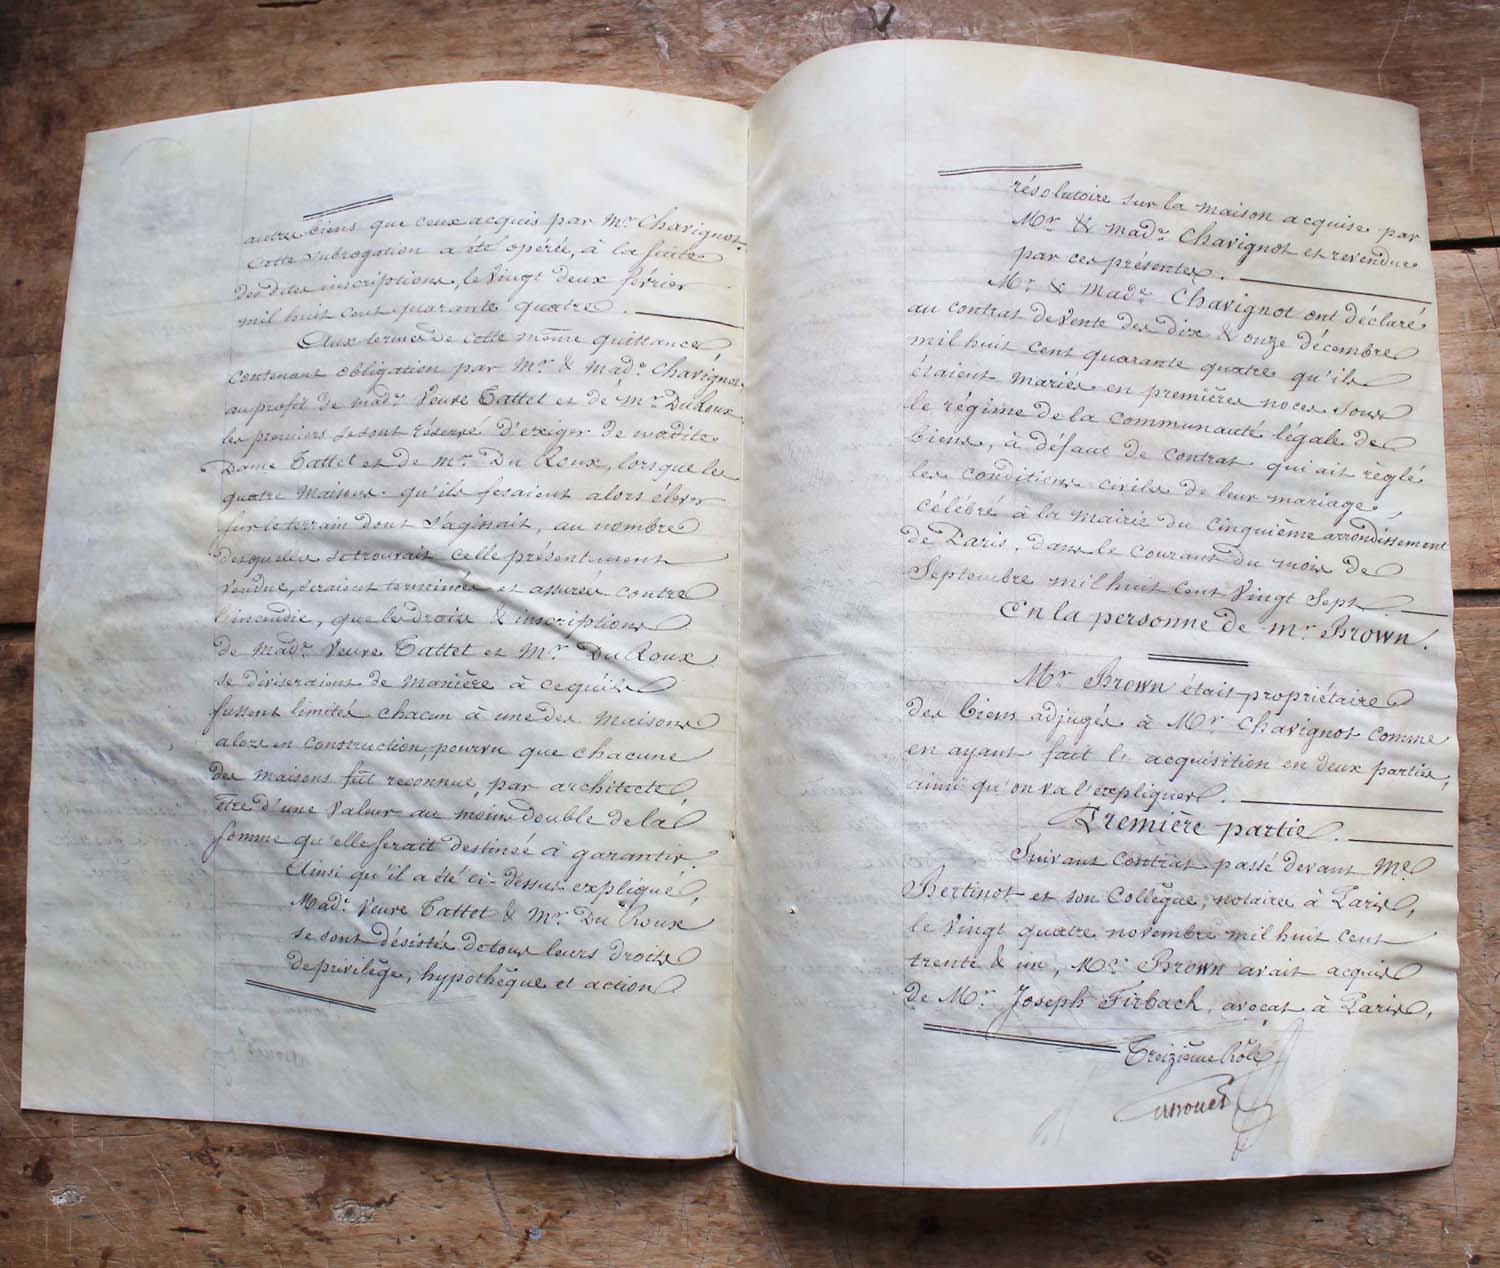 autres biens que ceux acquis par Mr. Chavignot.
Cette subrogation a été opérée, à la suite
desdites inscriptions, le vingt deux février
mil huit cent quarante quatre.
Aux termes de cette même quittance
contenant obligation par Mr. & Made. Chavignot
au profit de made. Veuve Tattet et de Mr. Du Roux
les premiers se sont réservé d'exiger de ladite
Dame Tattet et de Mr. Du Roux, lorsque les
quatre maisons qu'ils fesaient alors élever
sur le terrain dont s'agissait, au nombre
desquelles se trouvait celle présentement
vendue, seraient terminées et assurées contre
l'incendie, que les droits & inscriptions
de Made. Veuve Tattet et Mr. Du Roux
se diviseraient de manière à ce qu'ils
fussent limités chacun à une des maisons
alors en construction, pourvu que chacune
des maisons fût reconnue, par architecte
être d'une valeur au moins double de la
somme qu'elle serait destinée à garantir.
Ainsi qu'il a été ci-dessus expliqué,
Made. Veuve Tattet & Mr. Du Roux
se sont désistés de tous leurs droits
de privilège, hypothèque et action
résolutoire sur la maison acquise par
Mr. & made. Chavignot et revendue
par ces présentes.
Mr. & Made. Chavignot ont déclaré
au contrat de vente des dix & onze décembre
mil huit cent quarante quatre qu'ils
étaient mariés en premières noces sous
le régime de la communauté légale de
biens, à défaut de contrat qui ait réglé
les conditions civiles de leur mariage,
célébré à la mairie du cinquième arrondissement
de Paris, dans le courant du mois de
Septembre mil huit cent vingt sept.
En la personne de Mr. Brown.
Mr. Brown était propriétaire
des biens adjugés à Mr. Chavignot comme
en ayant fait l'acquisition en deux parties,
ainsi qu'on va l'expliquer.
Première partie.
Suivant contrat passé devant Me.
Bertinot et son Collègue, notaires à Paris,
le vingt quatre novembre mil huit cent
trente & un, Mr. Brown avait acquis
de Mr. Joseph Firbach, avocat à Paris,
Treizième Rôle